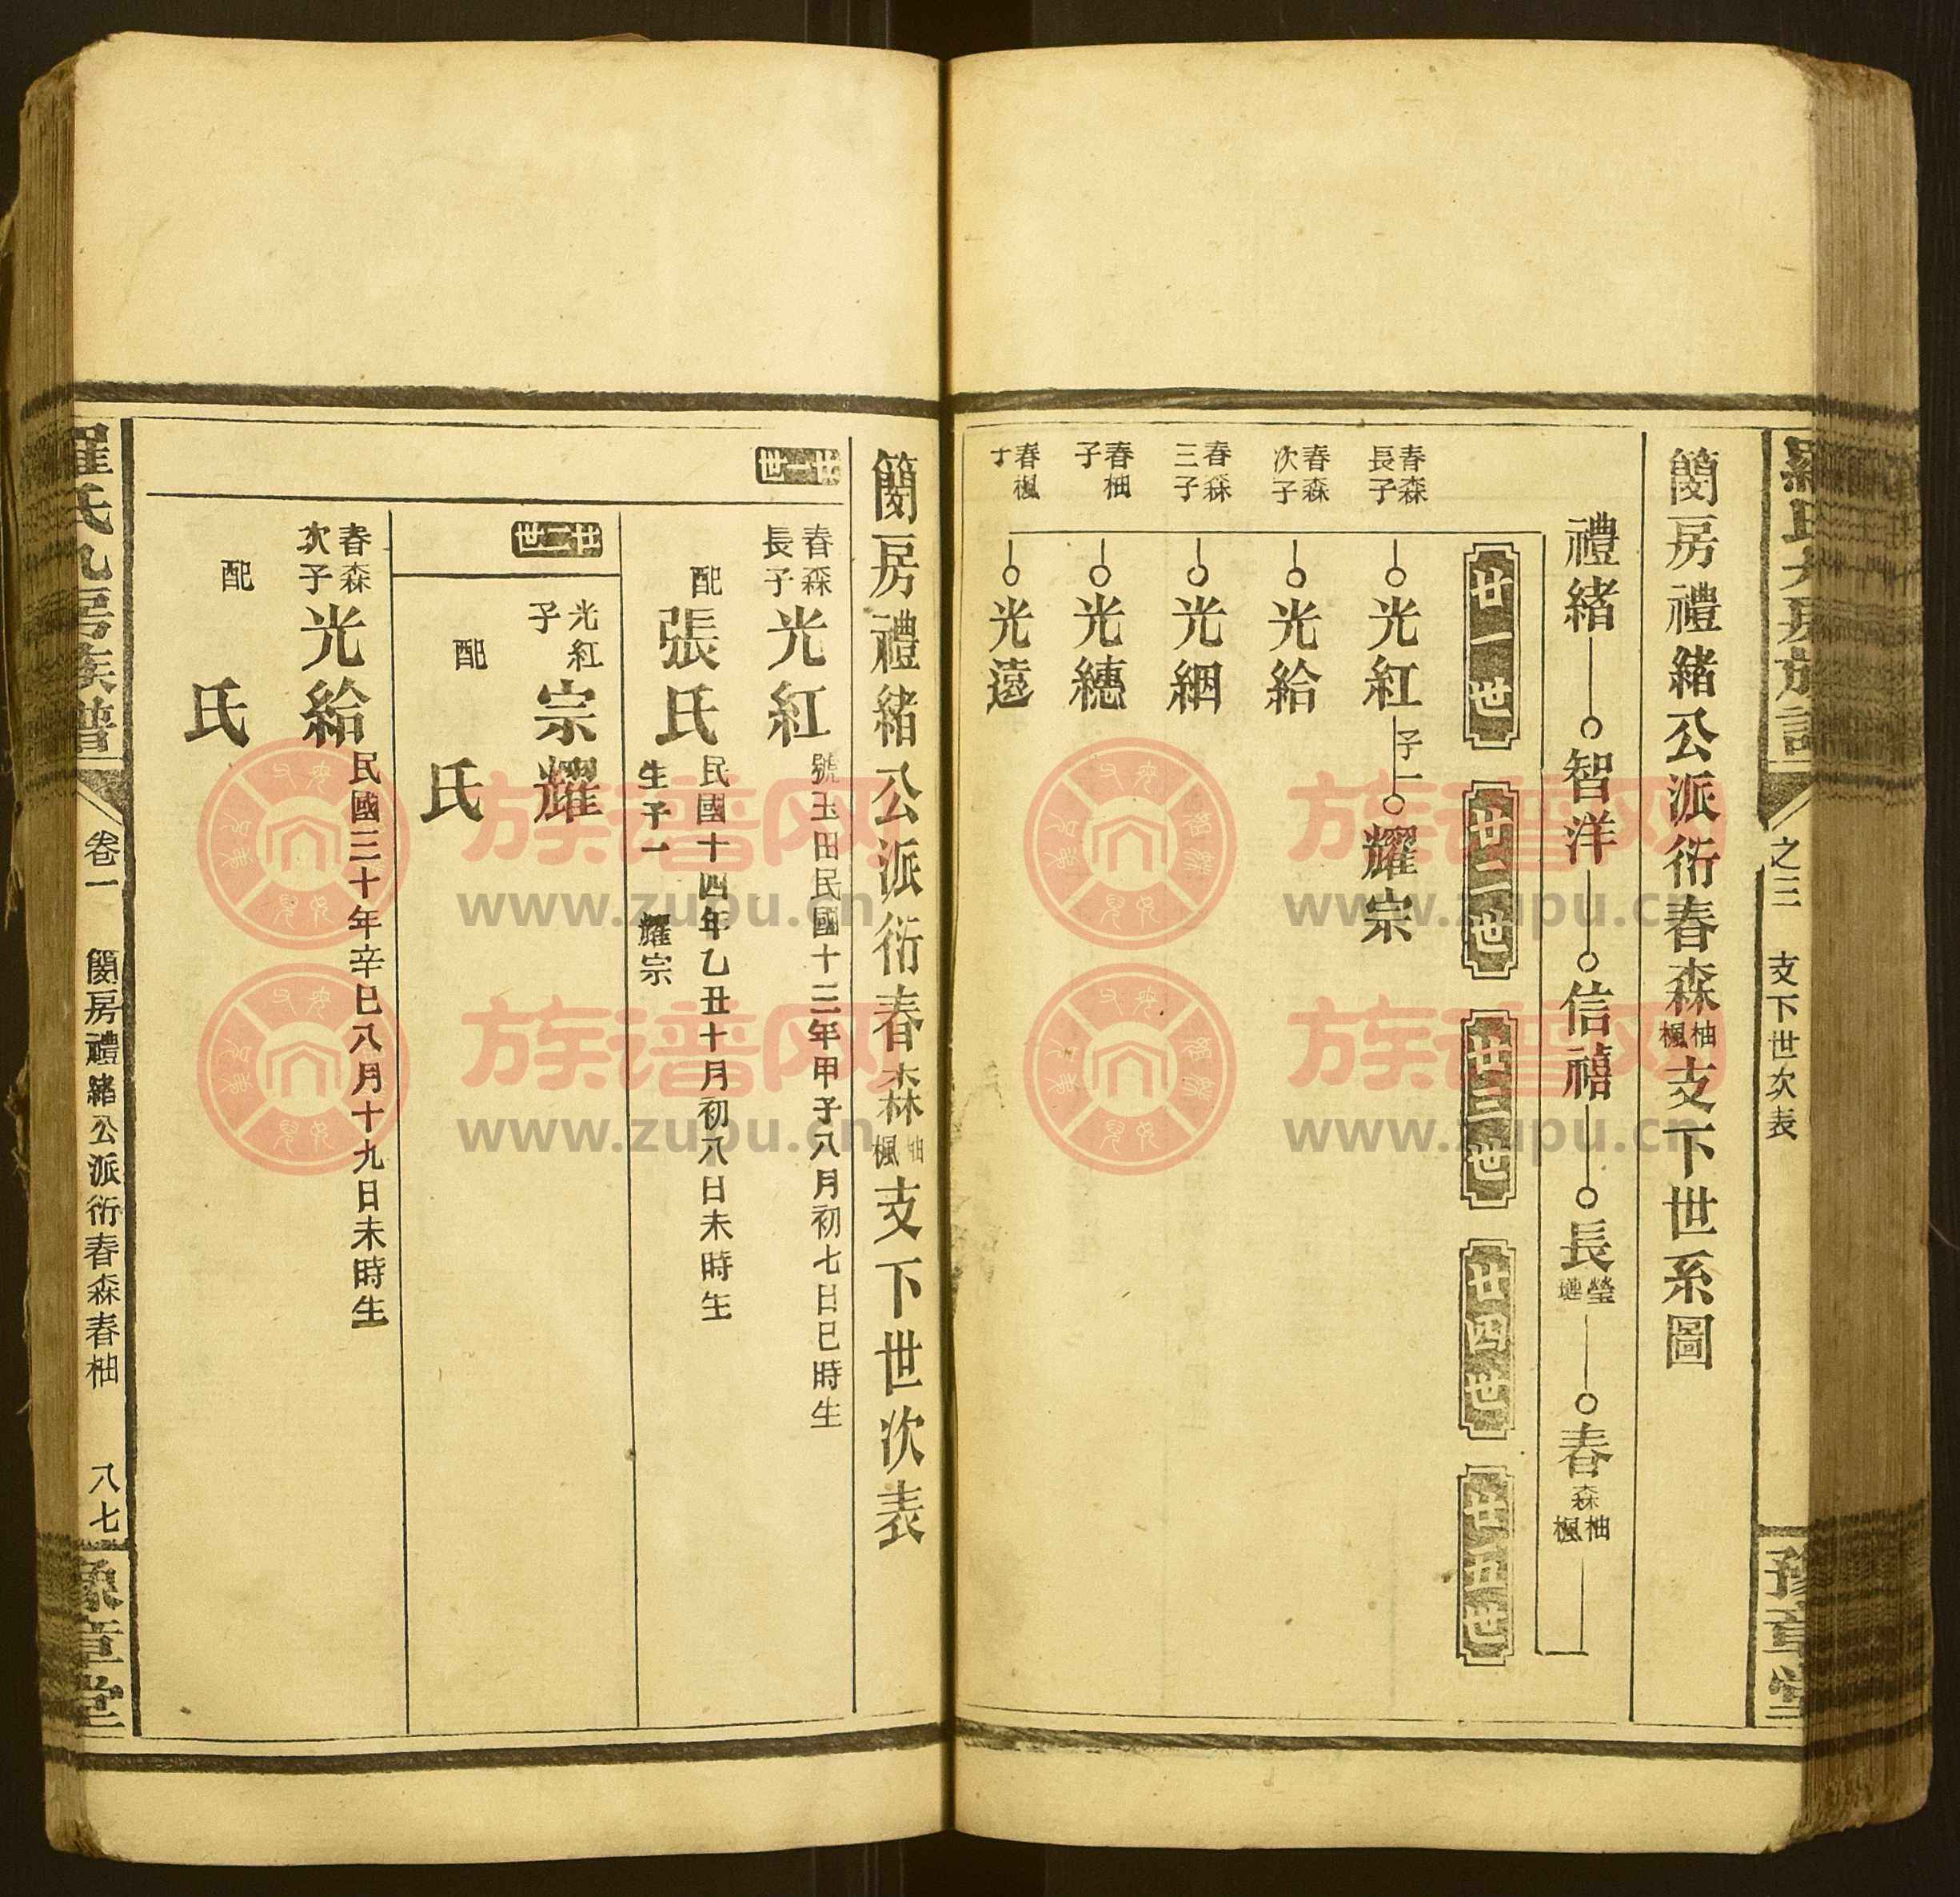 羅氏九房族譜
之三
支下世次表
豫章堂
蕳房禮緒公派衍春森柚楓支下世系圖
禮緒 智洋 信禧 長瑩 春森柚楓
廿一世 廿二世 廿三世 廿四世 廿五世
春森長子 光紅 子一 耀宗
春森次子 光給
春森三子 光絪
春柚子 光繐
春楓子 光遠
蕳房禮緒公派衍春森柚楓支下世次表
廿一世
春森長子 光紅 號玉田民國十三年甲子八月初七日巳時生
配 張氏 民國十四年乙丑十月初八日未時生
生子一 耀宗
廿二世
光紅子 宗耀
配 氏
春森次子 光給 民國三十年辛巳八月十九日未時生
配 氏
羅氏九房族譜
卷一
蕳房禮緒公派衍春森春柚
八七
豫章堂
族谱网
www.zupu.cn
族谱网
www.zupu.cn
族谱网
www.zupu.cn
族谱网
www.zupu.cn